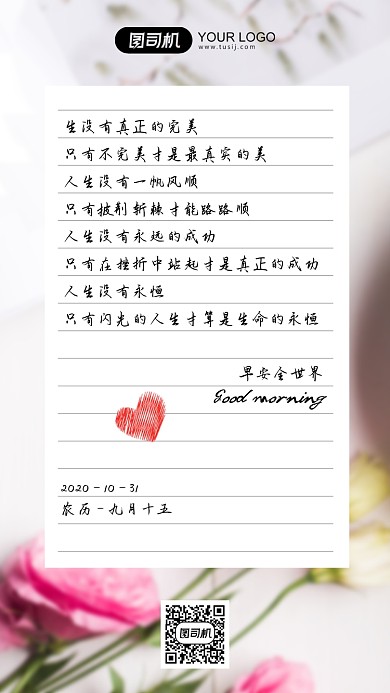 图司机 YOUR LOGO
www.tusij.com
生没有真正的完美
只有不完美才是最真实的美
人生没有一帆风顺
只有披荆斩棘才能路路顺
人生没有永远的成功
只有在挫折中站起才是真正的成功
人生没有永恒
只有闪光的人生才算是生命的永恒
早安全世界
Good morning
2020-10-31
农历-九月十五
图司机